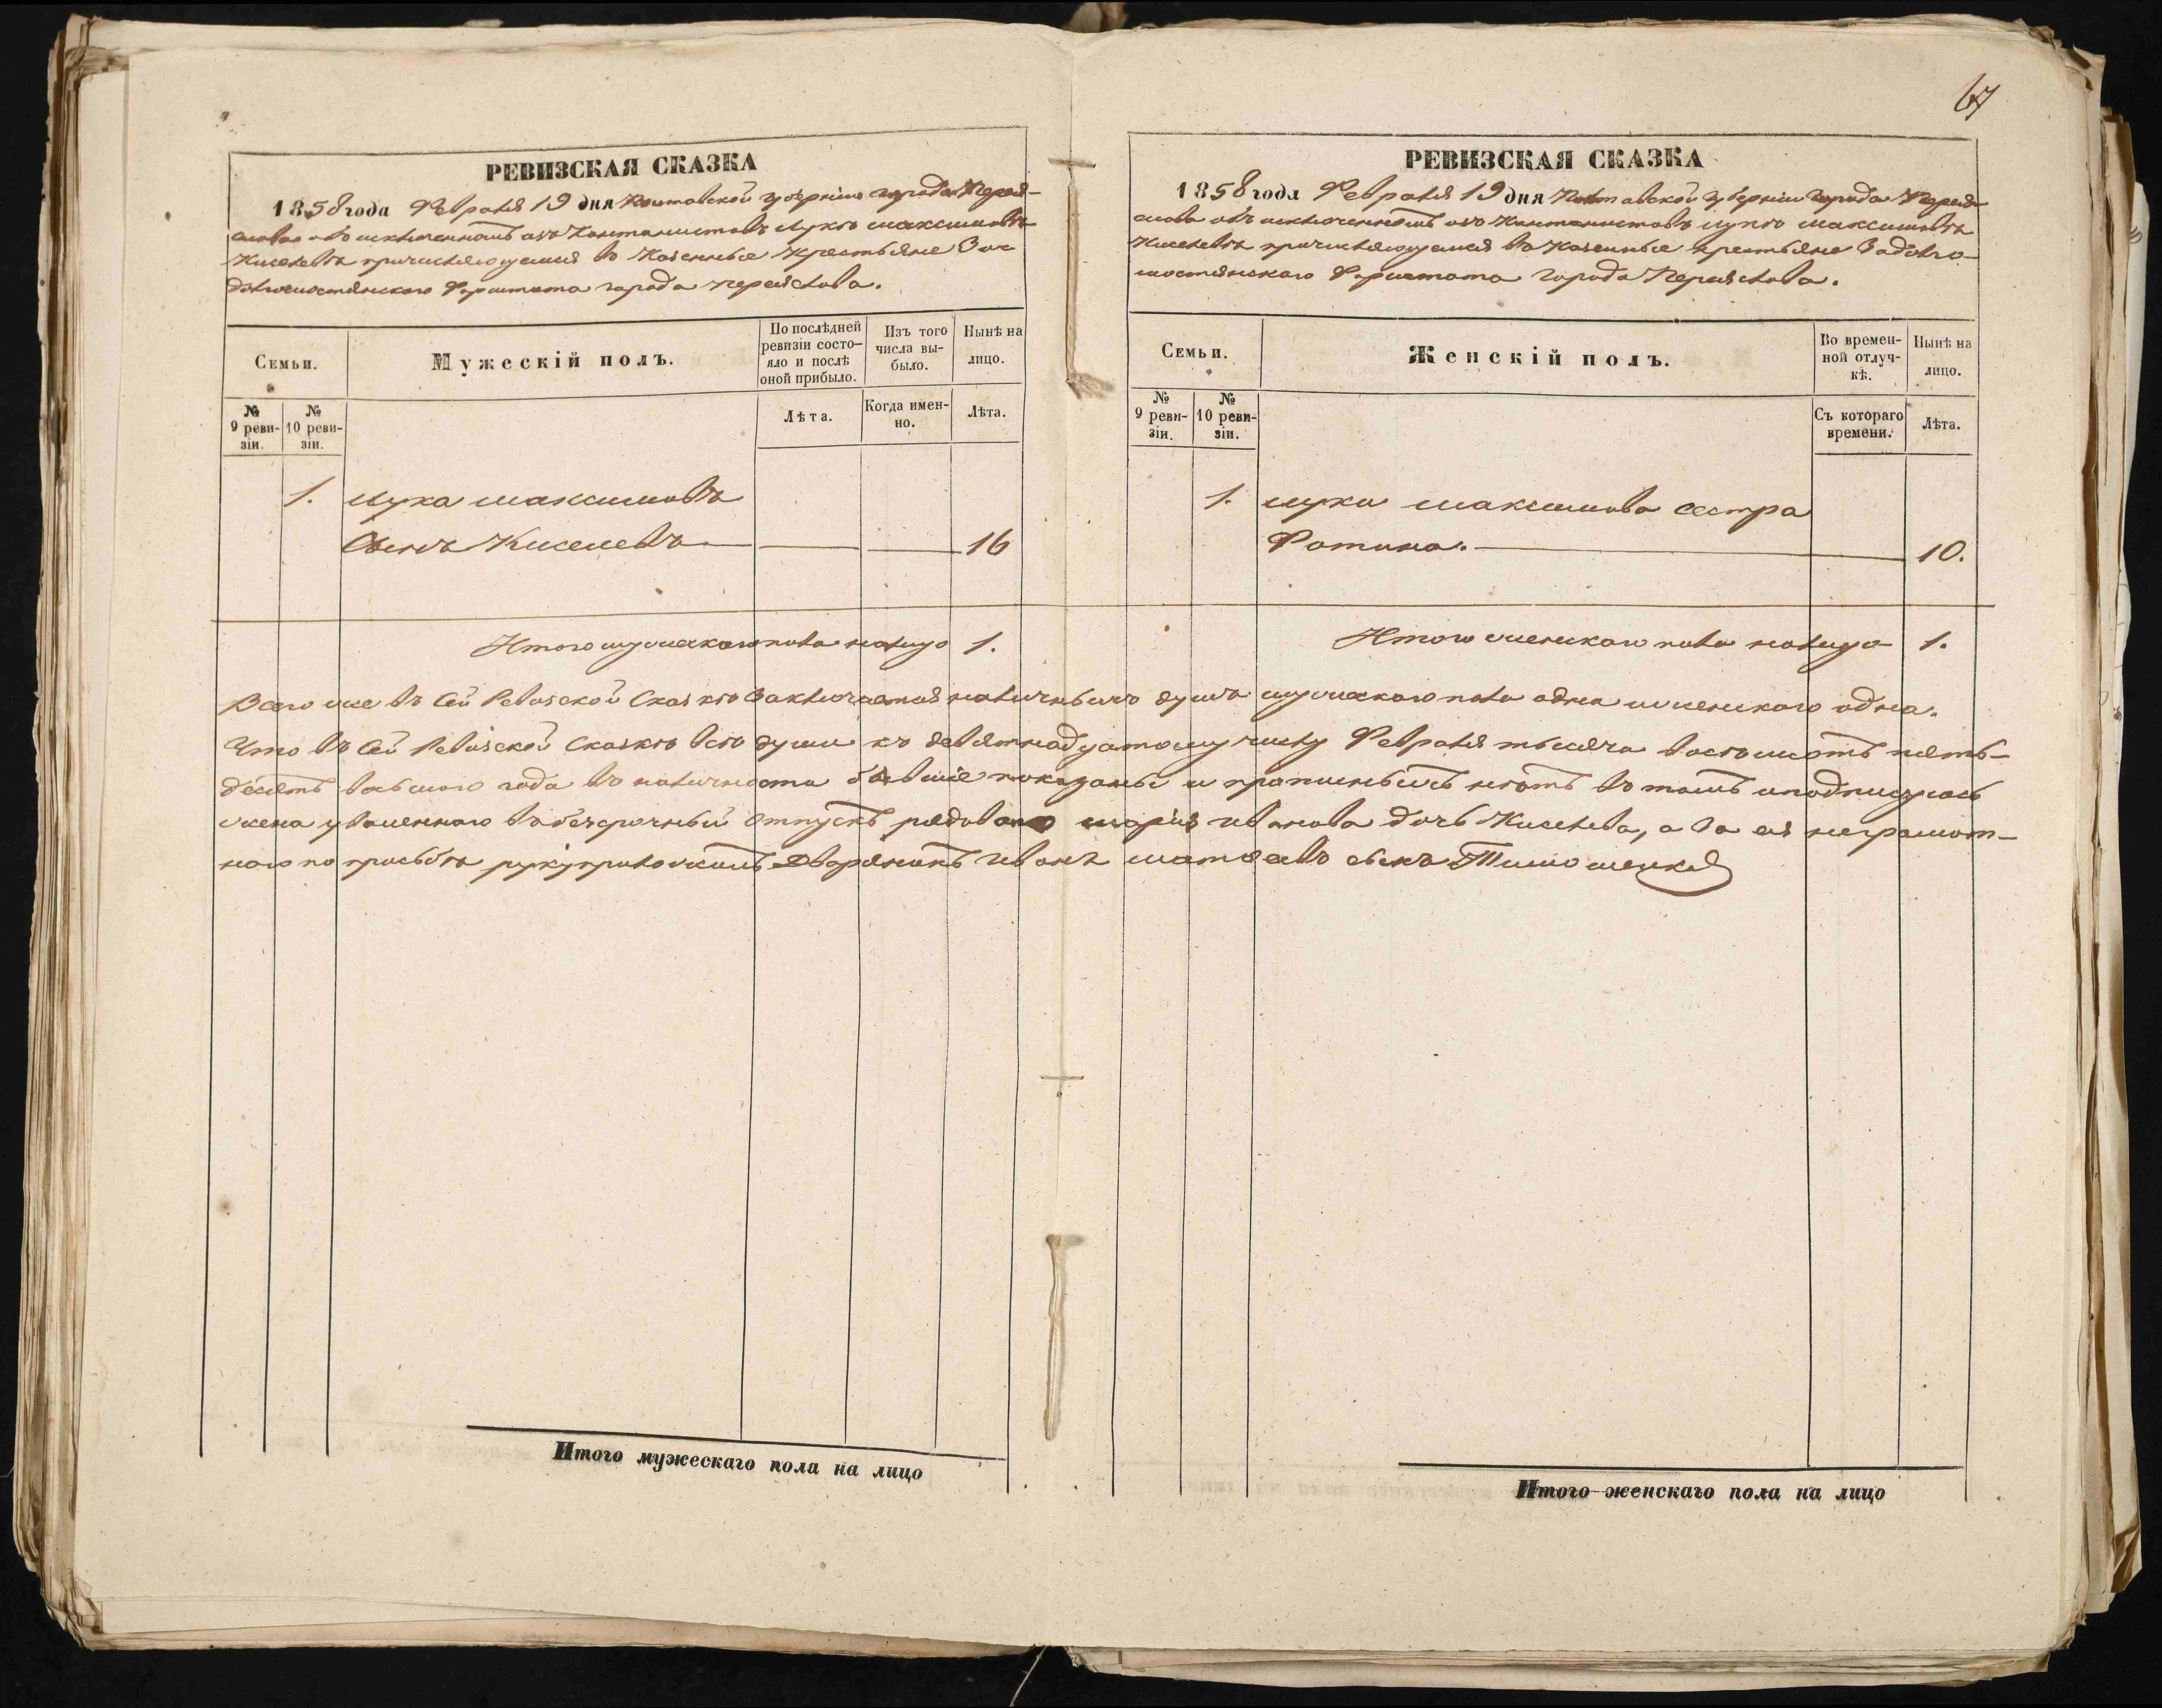 67
РЕВИЗСКАЯ СКАЗКА
1858 года Февраля 19 дня Полтавской губерніи города Перея-
слава объ исключенномъ изъ Кантонистовъ Лукѣ Максимовѣ
Киселевѣ причисляющемся въ Казенные Крестьяне За-
долгомостянского Форштата города Переяслова.
Семьи.
Мужескій полъ.
По послѣдней ревизіи состо-яло и послѣ оной прибыло.
Изъ того числа вы-было.
Нынѣ на лицо.
№ 9 реви-зіи.
№ 10 реви-зіи.
Лѣта.
Когда имен-но.
Лѣта.
1. Лука Максимовъ
Сынъ Киселевъ 16
Итого мужескаго пола налицо 1.
РЕВИЗСКАЯ СКАЗКА
1858 года Февраля 19 дня Полтавской Губерніи Города Перея-
слова объ исключенномъ изъ Кантонистовъ Лукѣ Максимовѣ
Киселевѣ причисляющемся въ Казенные крестьяне Задолго-
мостянского Форштата Города Переяслова.
Семьи.
Женскій полъ.
Во времен-ной отлуч-кѣ.
Нынѣ на лицо.
№ 9 реви-зіи.
№ 10 реви-зіи.
Съ котораго времени.
Лѣта.
1. Луки Максимова сестра
Фотина. 10.
Итого женскаго пола налицо 1.
Всего же въ Сей Ревизской Сказкѣ Заключается наличныхъ душъ мужескаго пола одна и женскаго одна.
Что въ Сей Ревизской Сказкѣ всѣ души къ девятнадцатому числу Февраля тысяча восемьсотъ пять-
десятъ восьмого года въ наличности бывшіе показаны и прописныхъ нѣтъ въ томъ и подписуюсь
жена уволенного въ безсрочный отпускъ рядоваго Марія Иванова дочь Киселева, а за ея неграмот-
ною по просьбѣ руку приложилъ Дворянинъ Иванъ Матвеевъ сынъ Тимошенко
Итого мужескаго пола на лицо
Итого женскаго пола на лицо